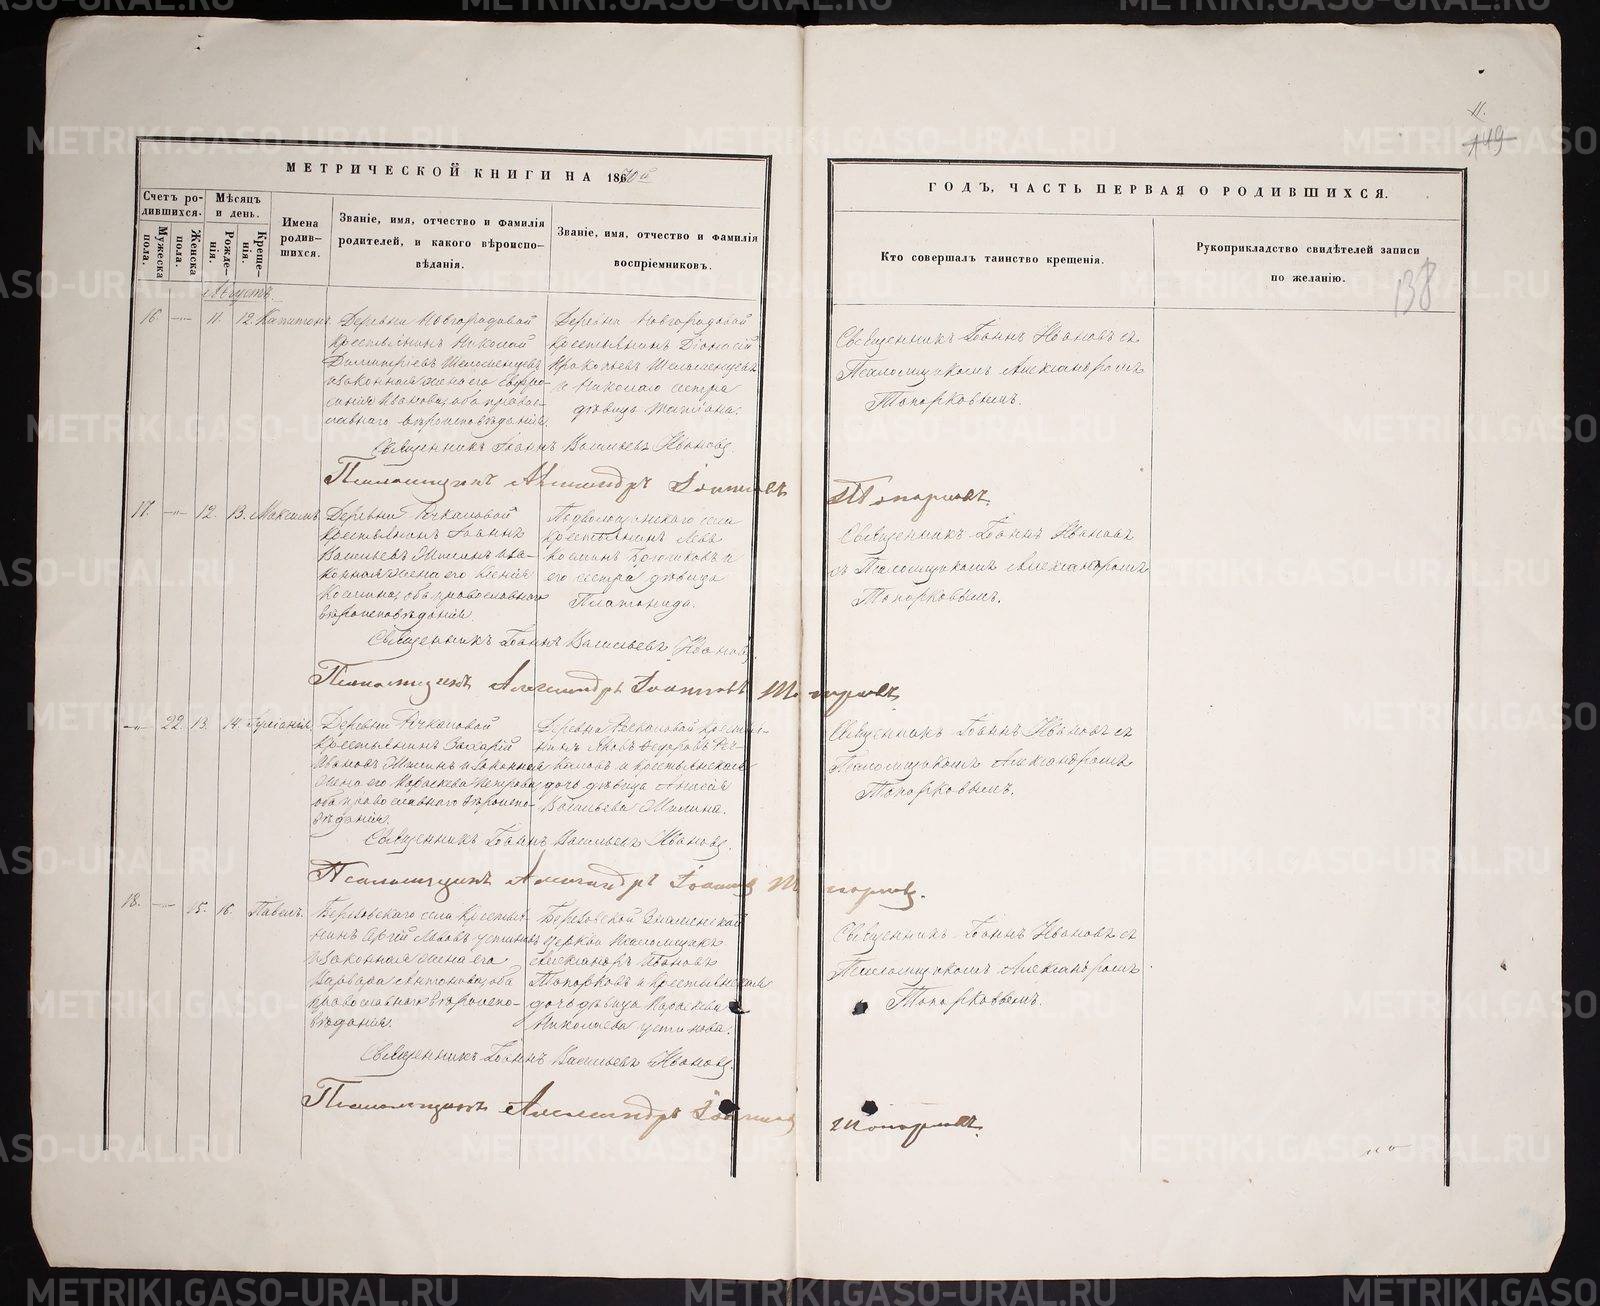 МЕТРИЧЕСКОЙ КНИГИ НА 1870 й
Счетъ ро-
дившихся.
Мѣсяцъ
и день.
Мужеска
пола.
Женска
пола.
Рожде-
нія.
Креще-
нія.
Имена
родив-
шихся.
Званіе, имя, отчество и фамилія
родителей, и какого вѣроиспо-
вѣданія.
Званіе, имя, отчество и фамилія
воспріемниковъ.
Августъ.
16. 11. 12. Капитонъ.
Деревни Новгородовой
крестьянинъ Николай
Димитріевъ Шеломенцевъ
и законная жена его Евфро-
синія Иванова, оба право-
славнаго вѣроисповѣданія.
Деревни Новгородовой
крестьянинъ Діонисій
Прокопьевъ Шеломенцевъ
и Николаю сестра
дѣвица Татіана.
Священникъ Іоаннъ Васильевъ Ивановъ.
Псаломщикъ Александръ Іоанновъ Топорковъ
17. 12. 13. Максимъ
Деревни Рѣчкаловой
крестьянинъ Іоаннъ
Васильевъ Милинъ и за-
конная жена его Ксенія
Космина, оба православнаго
вѣроисповѣданія.
Подволошинскаго села
крестьянинъ Левъ
Косминъ и
его сестра дѣвица
Платонида.
Священникъ Іоаннъ Васильевъ Ивановъ.
Псаломщикъ Александръ Іоанновъ Топорковъ
22. 13. 14. Іуліанія.
Деревни Рѣчкаловой
крестьянинъ Захарій
Ивановъ Милинъ и законная
жена его Параскева Петрова,
оба православнаго вѣроиспо-
вѣданія.
Деревни Рѣчкаловой крестья-
нинъ Яковъ Ѳедоровъ Рѣч-
каловъ и крестьянская
дочь дѣвица Анисія
Васильева Милина.
Священникъ Іоаннъ Васильевъ Ивановъ.
Псаломщикъ Александръ Іоанновъ Топорковъ.
18. 15. 16. Павелъ.
Березовскаго села крестья-
нинъ Сергій Львовъ Устиновъ
и законная жена его
Варвара Антонова, оба
православнаго вѣроиспо-
вѣданія.
Березовской Знаменской
церкви псаломщикъ
Александръ Ивановъ
Топорковъ и крестьянская
дочь дѣвица Параскева
Николаева Устинова.
Священникъ Іоаннъ Васильевъ Ивановъ.
Псаломщикъ Александръ Іоанновъ Топорковъ.
11.
149
ГОДЪ, ЧАСТЬ ПЕРВАЯ О РОДИВШИХСЯ.
Кто совершалъ таинство крещенія.
Рукоприкладство свидѣтелей записи
по желанію.
138
Священникъ Іоаннъ Ивановъ съ
Псаломщикомъ Александромъ
Топорковымъ.
Священникъ Іоаннъ Ивановъ
съ Псаломщикомъ Александромъ
Топорковымъ.
Священникъ Іоаннъ Ивановъ съ
Псаломщикомъ Александромъ
Топорковымъ.
Священникъ Іоаннъ Ивановъ съ
Псаломщикомъ Александромъ
Топорковымъ.
METRIKI.GASO-URAL.RU